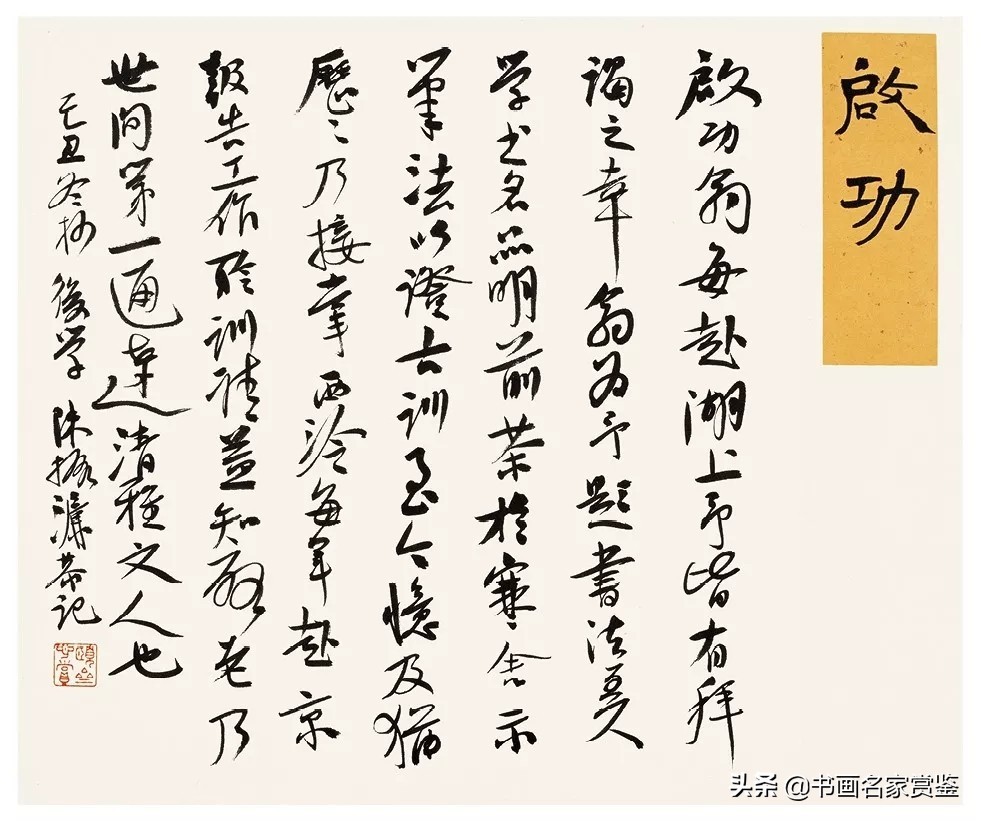 啟功
啟功翁每赴湖上予皆有拜
謁之幸翁为予题書法美
学书名品明前茶於寒舍示
笔法以證古训至今憶及猶
歷〻乃接掌西泠每年赴京
報告工作聆训請益知啟老乃
世间第一通達清雅文人也
己丑冬杪 後学 陳振濂恭记
头条 @书画名家赏鉴